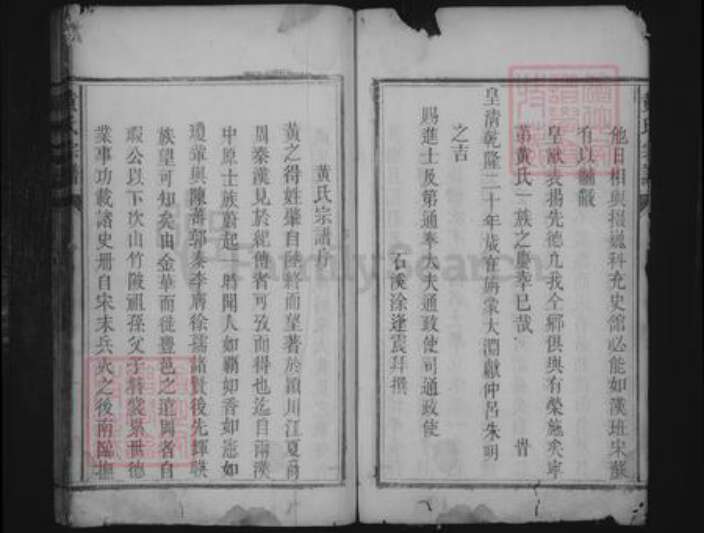 他日相與掇巍科充史館必能如漢班宋蘇
有以黼黻
皇猷表揚先德凡我全鄉俱與有榮施矣寧
第黃氏一族之慶幸已哉 峕
皇清乾隆二十年歲在旃蒙大淵獻仲呂朱明
之吉
賜進士及第通奉大夫通政使司通政使
石溪涂逢震拜撰
黃氏宗譜序
黃之得姓肇自陸終而望著於潁川江夏爾
周秦漢見於紀傳者可攷而得也迄自兩漢
中原士族蔚起 時聞人如霸如香如憲如
瓊輩與陳蕃郭泰李膺徐孺諸賢後先輝暎
族望可知矣由金華而徙豐邑之道閭者自
瑕公以下次山竹陂祖孫父子簪裳累世德
業事功載諸史册自宋末兵火之後南臨撫
黃氏宗譜
FamilySearch